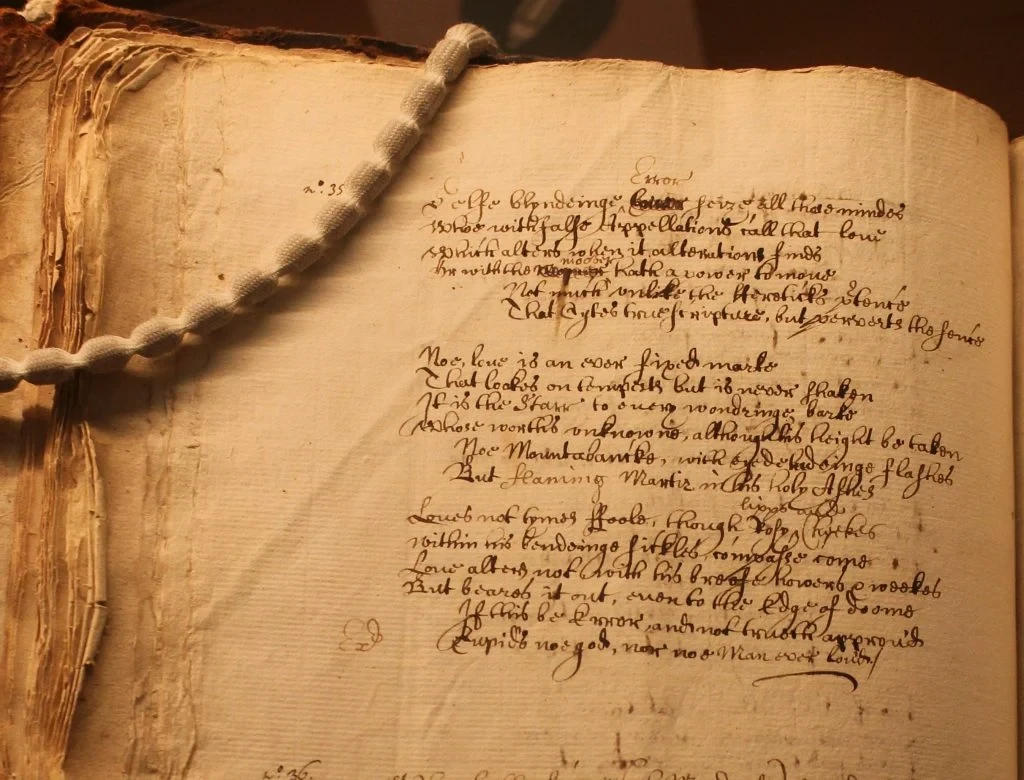 Error
n°. 35
Selfe blyndeinge seize all those mindes
Whoe with false Appellations call that love
Which alters when it alterations finds
Or with the mover hath a power to move
Not much unlike the Hereticks p̄tence
That Cytes true scripture, but perverts the sence
Noe, love is an ever fixed marke
That lookes on tempests but is never shaken
It is the Starr to every wondringe barke
Whose worths unknowne, although his height be taken
Noe Mountabancke, with eye deludeinge flashes
But flaming Martir in his holy Ashes
lipps and
Loves not tymes Foole, though Rosy Cheekes
within his bendeinge sickles compasse come
Love alters not with his breife howers & weekes
But beares it out, even to the Edge of doome
If this be Error, and not trueth approv'd
Cupids noe god, nor noe Man ever lov'd
n°. 36.